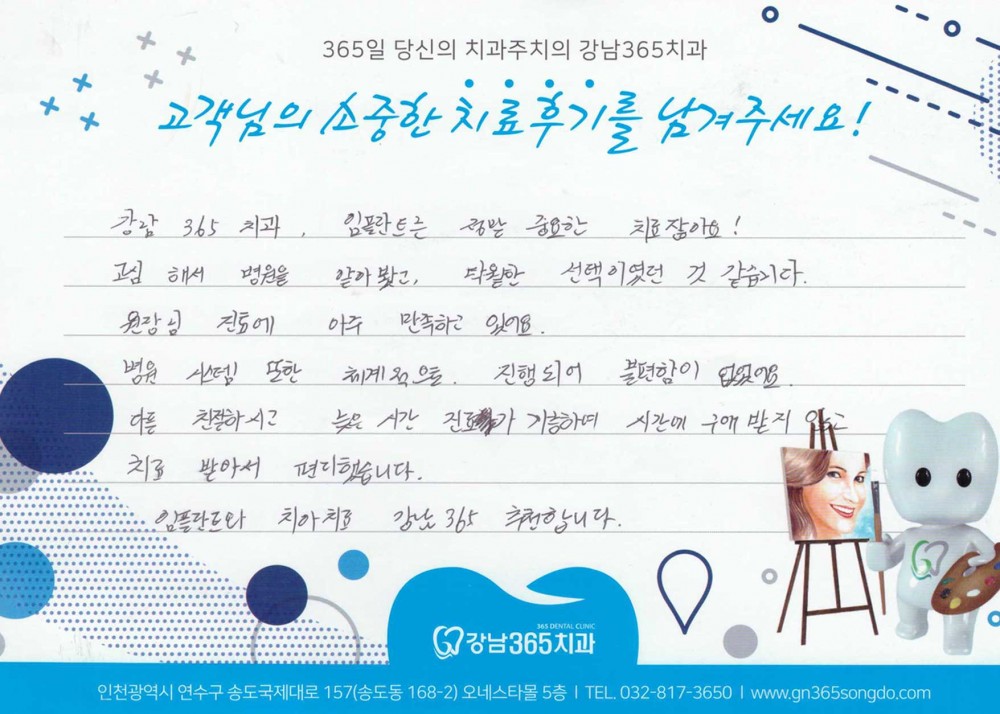 365일 당신의 치과주치의 강남365치과
고객님의 소중한 치료후기를 남겨주세요!
강남 365 치과, 임플란트는 정말 중요한 치료잖아요!
고심 해서 병원을 알아봤고, 탁월한 선택이였던 것 같습니다.
원장님 진료에 아주 만족하고 있어요.
병원 시스템 또한 체계적으로 진행되어 불편함이 없었어요.
다들 친절하시고 늦은 시간 진료가 가능하여 시간에 구애 받지 않고
치료 받아서 편리했습니다.
임플란트와 치아치료 강남 365 추천합니다.
365 DENTAL CLINIC
강남365치과
인천광역시 연수구 송도국제대로 157(송도동 168-2) 오네스타몰 5층 | TEL. 032-817-3650 | www.gn365songdo.com